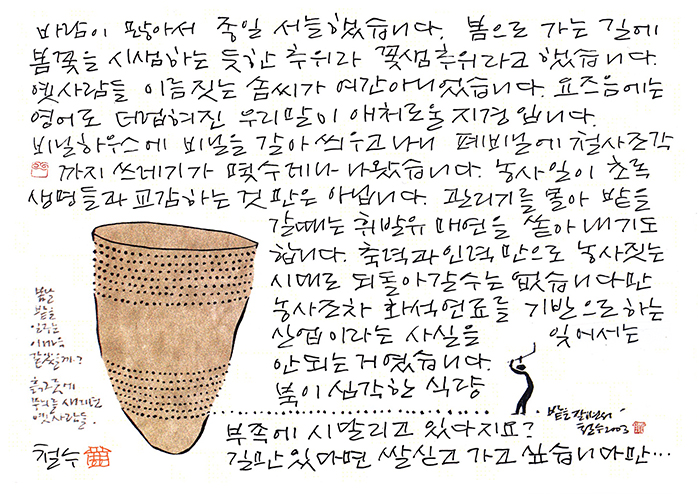 바람이 많아서 종일 서늘했습니다. 봄으로 가는 길에
봄꽃을 시샘하는 듯한 추위라 꽃샘추위라고 했습니다.
옛사람들 이름짓는 솜씨가 여간아니었습니다. 요즈음에는
영어로 더럽혀진 우리말이 애처로울 지경입니다.
비닐하우스에 비닐을 갈아 씌우고나니 폐비닐에 철사조각
까지 쓰레기가 몇수레나 나왔습니다. 농사일이 초록
생명들과 교감하는 것 만은 아닙니다. 관리기를 몰아 밭을
갈때는 휘발유 매연을 쏟아내기도
합니다. 축력과 인력 만으로 농사짓는
시대로 되돌아갈수는 없습니다만
농사조차 화석연료를 기반으로 하는
산업이라는 사실을 잊어서는
안되는거였습니다.
북이 심각한 식량
부족에 시달리고 있다지요?
길만있다면 쌀싣고 가고 싶습니다만…
봄날
밭을
일구는
이마음
같았을까?
흙그릇에
무늬를 새기던
옛사람들.
밭을 갈면서.
철수2003
철수